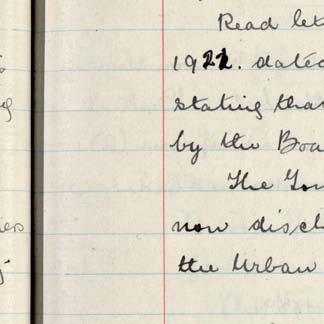 Read let
1922. dated
stating that
by the Boa
The
now disch
the Urban